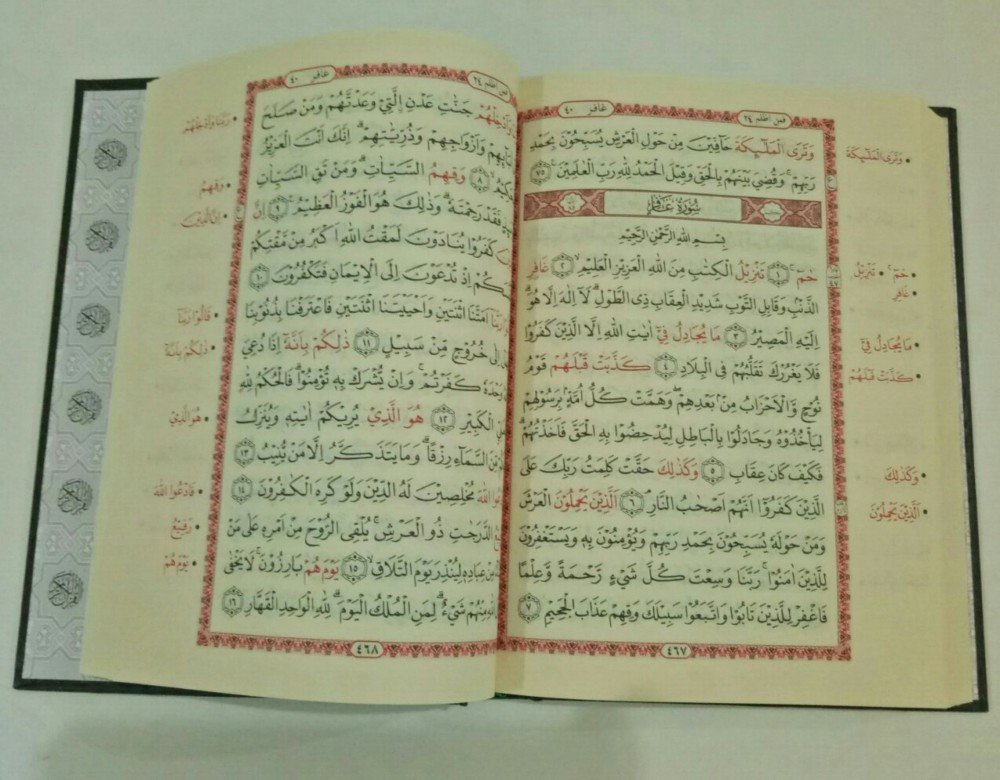 فمن اظلم ٢٤
غافر ٤٠
وَتَرَى الْمَلٰۤىِٕكَةَ حَاۤفِّيْنَ مِنْ حَوْلِ الْعَرْشِ يُسَبِّحُوْنَ بِحَمْدِ
رَبِّهِمْۚ وَقُضِيَ بَيْنَهُمْ بِالْحَقِّ وَقِيْلَ الْحَمْدُ لِلّٰهِ رَبِّ الْعٰلَمِيْنَ ٧٥
سُوْرَةُ غَافِر
بِسْمِ اللّٰهِ الرَّحْمٰنِ الرَّحِيْمِ
حٰمۤۚ ١ تَنْزِيْلُ الْكِتٰبِ مِنَ اللّٰهِ الْعَزِيْزِ الْعَلِيْمِۙ ٢ غَافِرِ
الذَّنْۢبِ وَقَابِلِ التَّوْبِ شَدِيْدِ الْعِقَابِ ذِى الطَّوْلِۗ لَآ اِلٰهَ اِلَّا هُوَۗ
اِلَيْهِ الْمَصِيْرُ ٣ مَا يُجَادِلُ فِيْٓ اٰيٰتِ اللّٰهِ اِلَّا الَّذِيْنَ كَفَرُوْا
فَلَا يَغْرُرْكَ تَقَلُّبُهُمْ فِى الْبِلَادِ ٤ كَذَّبَتْ قَبْلَهُمْ قَوْمُ
نُوْحٍ وَّالْاَحْزَابُ مِنْۢ بَعْدِهِمْۖ وَهَمَّتْ كُلُّ اُمَّةٍۢ بِرَسُوْلِهِمْ
لِيَأْخُذُوْهُ وَجَادَلُوْا بِالْبَاطِلِ لِيُدْحِضُوْا بِهِ الْحَقَّ فَاَخَذْتُهُمْ
فَكَيْفَ كَانَ عِقَابِ ٥ وَكَذٰلِكَ حَقَّتْ كَلِمَتُ رَبِّكَ عَلَى
الَّذِيْنَ كَفَرُوْٓا اَنَّهُمْ اَصْحٰبُ النَّارِۘ ٦ اَلَّذِيْنَ يَحْمِلُوْنَ الْعَرْشَ
وَمَنْ حَوْلَهٗ يُسَبِّحُوْنَ بِحَمْدِ رَبِّهِمْ وَيُؤْمِنُوْنَ بِهٖ وَيَسْتَغْفِرُوْنَ
لِلَّذِيْنَ اٰمَنُوْاۚ رَبَّنَا وَسِعْتَ كُلَّ شَيْءٍ رَّحْمَةً وَّعِلْمًا
فَاغْفِرْ لِلَّذِيْنَ تَابُوْا وَاتَّبَعُوْا سَبِيْلَكَ وَقِهِمْ عَذَابَ الْجَحِيْمِ ٧
٤٦٧
وَتَرَى الْمَلٰۤىِٕكَةَ
حٰمۤۚ • تَنْزِيْلُ
غَافِرِ
مَا يُجَادِلُ فِيْٓ
كَذَّبَتْ قَبْلَهُمْ
وَكَذٰلِكَ
اَلَّذِيْنَ يَحْمِلُوْنَ
فمن اظلم ٢٤
غافر ٤٠
وَاَدْخِلْهُمْ جَنّٰتِ عَدْنِ ِۨالَّتِيْ وَعَدْتَّهُمْ وَمَنْ صَلَحَ
وَاَزْوَاجِهِمْ وَذُرِّيّٰتِهِمْۗ اِنَّكَ اَنْتَ الْعَزِيْزُ
٨ وَقِهِمُ السَّيِّاٰتِۗ وَمَنْ تَقِ السَّيِّاٰتِ
فَقَدْ رَحِمْتَهٗۗ وَذٰلِكَ هُوَ الْفَوْزُ الْعَظِيْمُ ٩ اِنَّ
كَفَرُوْا يُنَادَوْنَ لَمَقْتُ اللّٰهِ اَكْبَرُ مِنْ مَّقْتِكُمْ
اِذْ تُدْعَوْنَ اِلَى الْاِيْمَانِ فَتَكْفُرُوْنَ ١٠
رَبَّنَآ اَمَتَّنَا اثْنَتَيْنِ وَاَحْيَيْتَنَا اثْنَتَيْنِ فَاعْتَرَفْنَا بِذُنُوْبِنَا
اِلٰى خُرُوْجٍ مِّنْ سَبِيْلٍ ١١ ذٰلِكُمْ بِاَنَّهٗٓ اِذَا دُعِيَ
وَحْدَهٗ كَفَرْتُمْۚ وَاِنْ يُّشْرَكْ بِهٖ تُؤْمِنُوْاۗ فَالْحُكْمُ لِلّٰهِ
الْكَبِيْرِ ١٢ هُوَ الَّذِيْ يُرِيْكُمْ اٰيٰتِهٖ وَيُنَزِّلُ
مِّنَ السَّمَاۤءِ رِزْقًاۗ وَمَا يَتَذَكَّرُ اِلَّا مَنْ يُّنِيْبُ ١٣
اللّٰهَ مُخْلِصِيْنَ لَهُ الدِّيْنَ وَلَوْ كَرِهَ الْكٰفِرُوْنَ ١٤
الدَّرَجٰتِ ذُو الْعَرْشِۚ يُلْقِى الرُّوْحَ مِنْ اَمْرِهٖ عَلٰى مَنْ
مِنْ عِبَادِهٖ لِيُنْذِرَ يَوْمَ التَّلَاقِۙ ١٥ يَوْمَ هُمْ بَارِزُوْنَۚ لَا يَخْفٰى
اللّٰهِ مِنْهُمْ شَيْءٌۗ لِمَنِ الْمُلْكُ الْيَوْمَۗ لِلّٰهِ الْوَاحِدِ الْقَهَّارِ ١٦
٤٦٨
رَبَّنَا وَاَدْخِلْهُمْ
وَقِهِمُ
اِنَّ الَّذِيْنَ
قَالُوْا رَبَّنَآ
ذٰلِكُمْ بِاَنَّهٗٓ
هُوَ الَّذِيْ
فَادْعُوا اللّٰهَ
رَفِيْعُ
يَوْمَ هُمْ